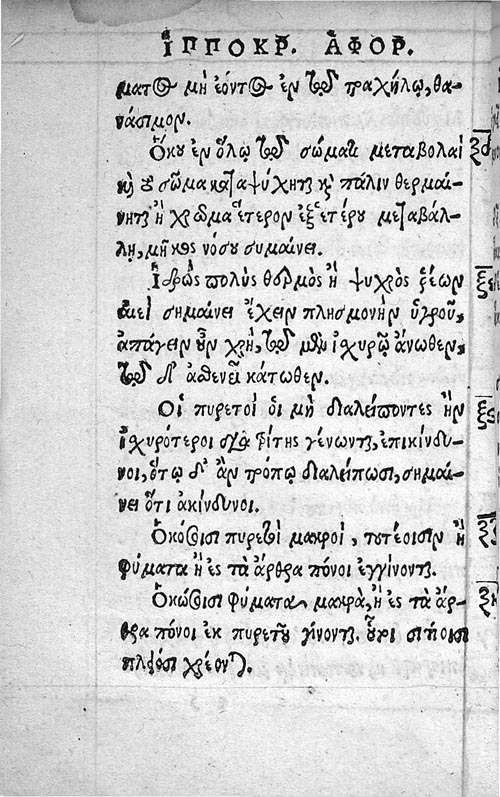 ἹΠΠΟΚΡ. ἈΦΟΡ.
ματος μὴ ἐόντος ἐν τῷ τραχήλῳ, θα-
νάσιμον.
Ὅκου ἐν ὅλῳ τῷ σώματι μεταβολαὶ ξδ
κὴ τὸ σῶμα καταψύχηται καὶ πάλιν θερμαί-
νηται ἢ χρῶμα ἕτερον ἐξ ἑτέρου μεταβάλ-
λῃ, μῆκος νόσου συμαίνει.
Ἱδρὼς πολὺς θερμὸς ἢ ψυχρὸς ῥέων ξε
αἰεὶ σημαίνει ἔχειν πλησμονὴν ὑγροῦ,
ἀπάγειν οὖν χρὴ, τῷ μὲν ἰσχυρῷ ἄνωθεν,
τῷ δ' ἀσθενεῖ κάτωθεν.
Οἱ πυρετοὶ ὁι μὴ διαλείποντες ἢν ξς
ἰσχυρότεροι διὰ τρίτης γένωνται, ἐπικίνδυ-
νοι, ὅτῳ δ' ἂν τρόπῳ διαλείπωσι, σημαί-
νει ὅτι ἀκίνδυνοι.
Ὁκόσοισι πυρετοὶ μακροὶ, τοτέοισιν ἢ ξζ
φύματα ἢ ἐς τὰ ἄρθρα πόνοι ἐγγίνονται.
Ὁκόσοισι φύματα μακρὰ, ἢ ἐς τὰ ἄρ- ξη
θρα πόνοι ἐκ πυρετοῦ γίνονται. οὗτοι σιτίοισι
πλείοσι χρέονται.